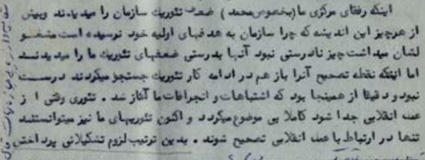 اینکه رفقای مرکزی ما (بخصوص محمد) ضعف تئوریک سازمان را میدیدند وبیش
از هرچیز این اندیشه که چرا سازمان به هدفهای اولیه خود نرسیده است مشغو
لشان میداشت چیز نادرستی نبود آنها بدرستی ضعفهای تئوریک ما را میدیدند
اما اینکه نقطه تصحیح آنرا باز هم در ادامه کار تئوریک جستجو میکردند درست
نبود و دقیقا از همینجا بود که اشتباهات و انحرافات ما آغاز شد . تئوری وقتی از
عمل انقلابی جدا شود کاملا بی موضوع میگردد و اکنون تئوریهای ما نیز میتوانستند
تنها در ارتباط با عمل انقلابی تصحیح شوند . بدین ترتیب لزوم تشکیلاتی پرداختن